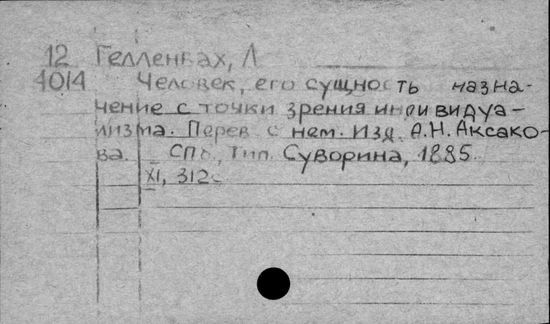 12 Гелленбах, Л
4014 Человек, его сущность назна-
чение с точки зрения индивидуа-
лизма. Перев с нем. Изд. А.Н. Аксако-
ва. СПб., Тип. Суворина, 1885.
XI, 312с